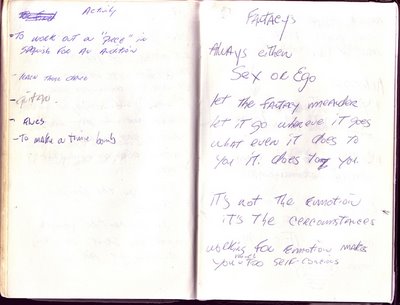 Activity
- To work out a "piece" in
Spanish for an audition
- learn those chords
- guitar.
- Elvis
- To make a time bomb
Fantacys
Always either
Sex or Ego
let the Fantacy meander
let it go wherever it goes
what ever it does to
you it does to you
it's not the Emotion
it's the cercumstances
working for Emotion makes
you too self-concious